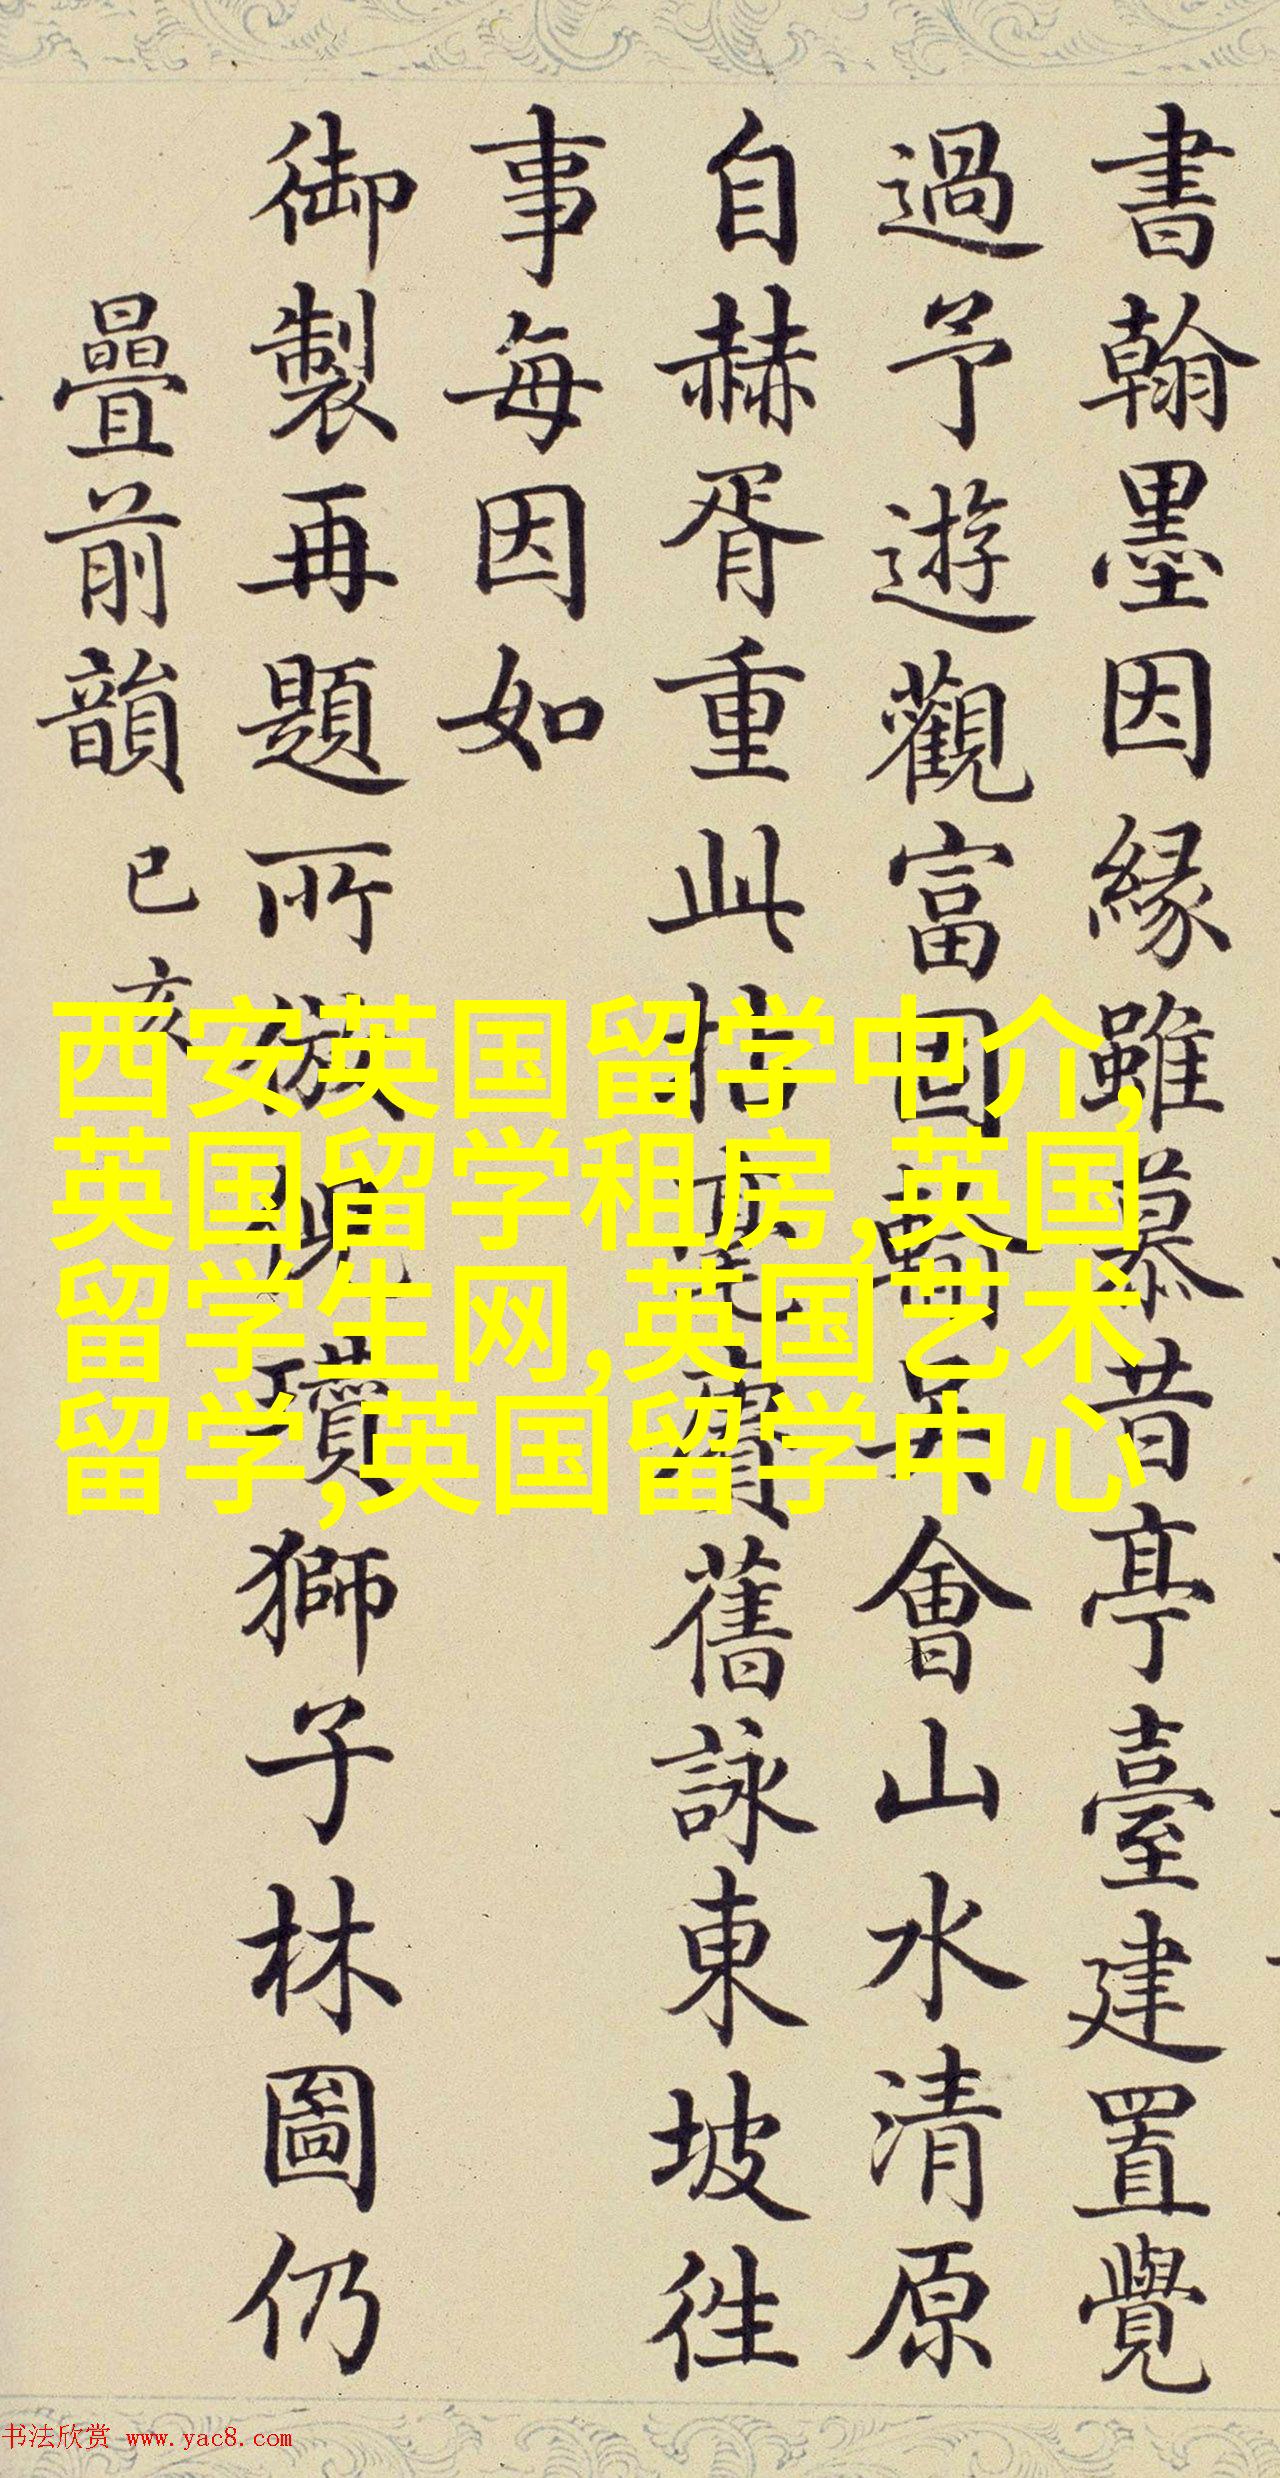 書翰墨因緣雖慕昔亭臺建置覺
過予遊觀富固會山水清原
自赫胥重此拈毫賡舊詠東坡往
事每因如
御製再題所倣倪瓚獅子林圖仍
疊前韻 己亥
西安英国留学中介,
英国留学租房,英国
留学生网,英国艺术
留学,英国留学中心
书法欣赏 www.yac8.com